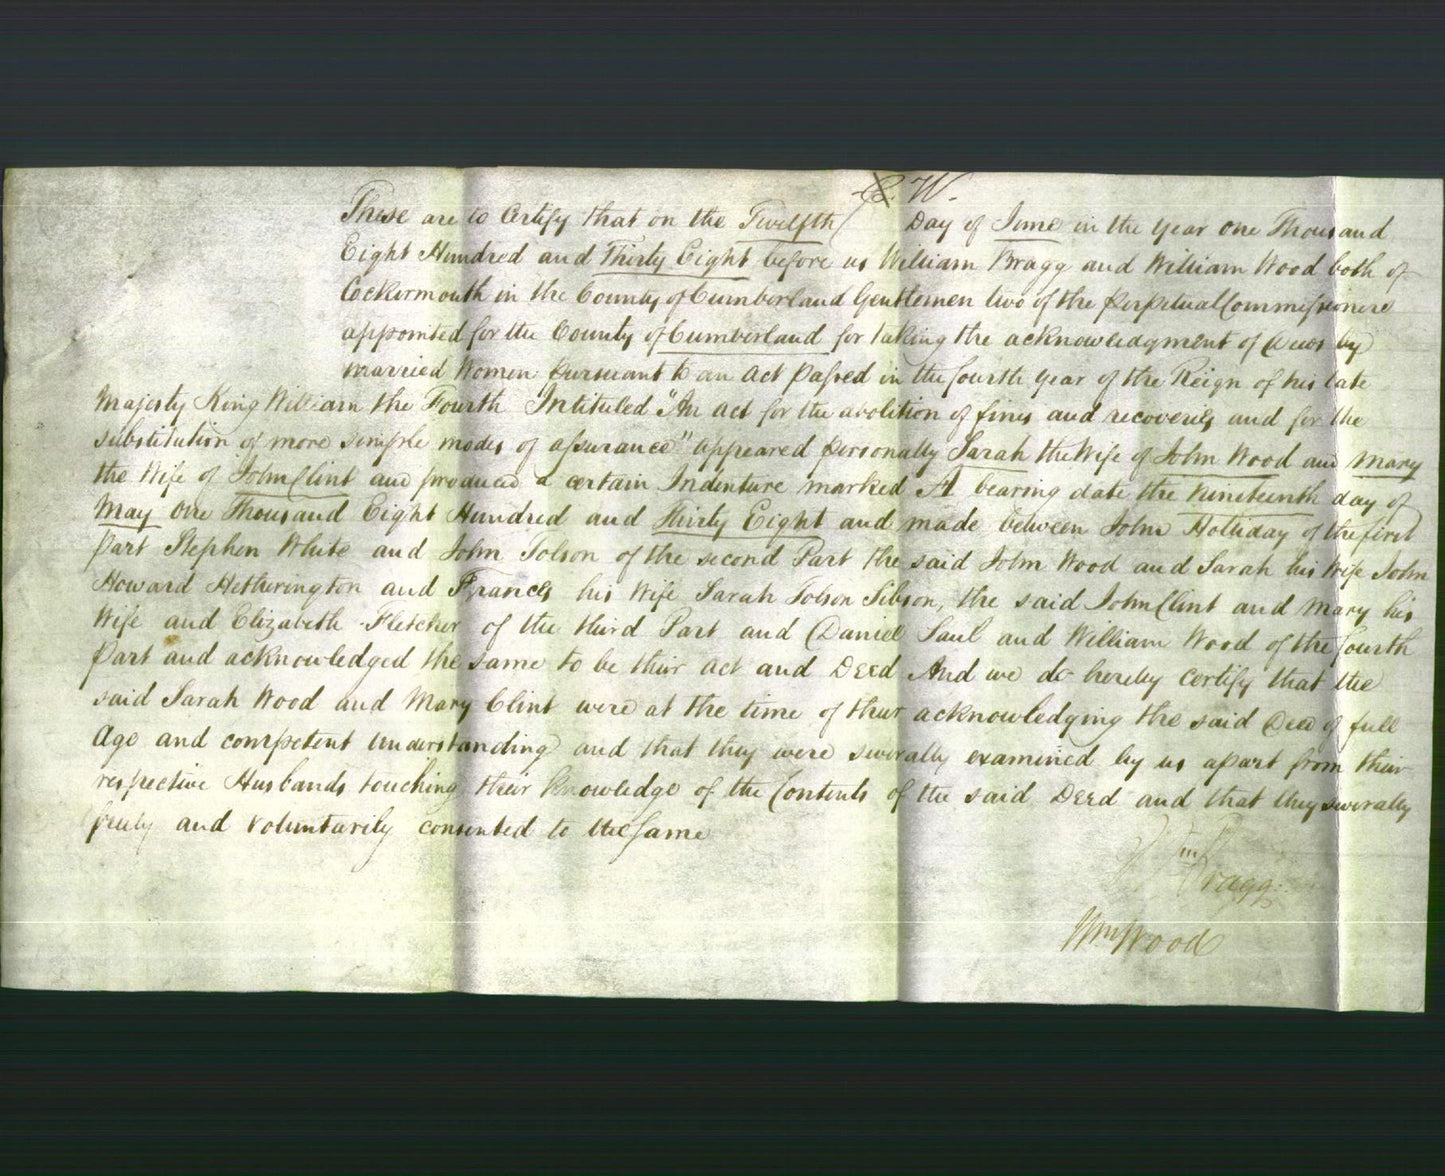 C. W.
These are to Certify that on the Twelfth Day of June in the Year One Thousand
Eight Hundred and Thirty Eight before us William Bragg and William Wood both of
Cockermouth in the County of Cumberland Gentlemen two of the perpetual Commissioners
appointed for the County of Cumberland for taking the acknowledgment of Deeds by
married Women pursuant to an Act passed in the fourth Year of the Reign of his late
Majesty King William the Fourth Intituled "An act for the abolition of fines and recoveries and for the
substitution of more simple modes of assurance" appeared personally Sarah the Wife of John Wood and Mary
the Wife of John Clint and produced a certain Indenture marked A bearing date the Nineteenth day of
May One Thousand Eight Hundred and Thirty Eight and made between John Holliday of the first
Part Stephen White and John Tolson of the second Part the said John Wood and Sarah his Wife John
Howard Hetherington and Frances his Wife Sarah Tolson Sibson, the said John Clint and Mary his
Wife and Elizabeth Fletcher of the third Part and Daniel Saul and William Wood of the fourth
Part and acknowledged the same to be their act and Deed And we do hereby Certify that the
said Sarah Wood and Mary Clint were at the time of their acknowledging the said Deed of full
Age and competent Understanding and that they were severally examined by us apart from their
respective Husbands touching their knowledge of the Contents of the said Deed and that they severally
freely and Voluntarily consented to the same
Wm Bragg
Wm Wood